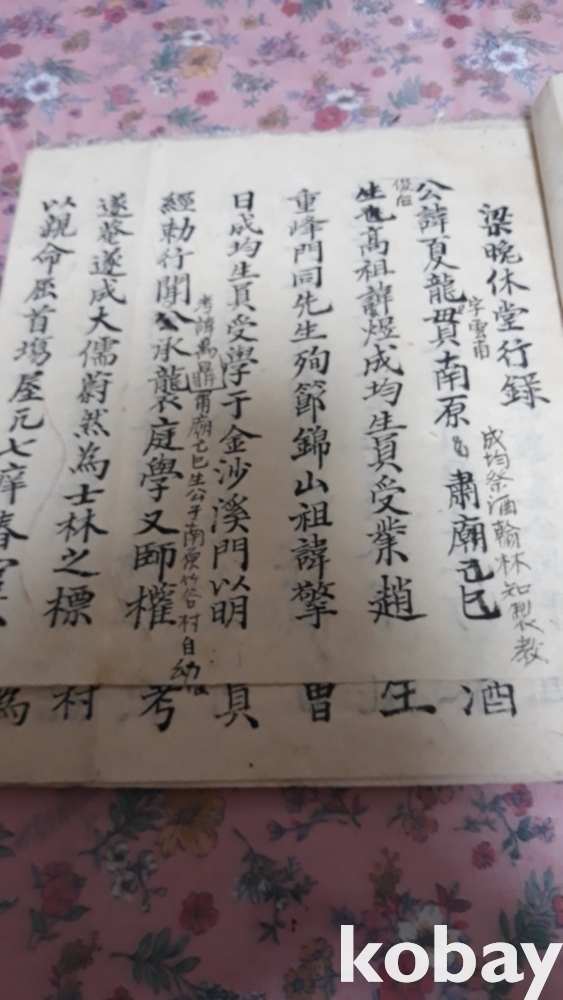 梁晚休堂行錄
成均祭酒翰林知製教
公諱夏龍貫南原肅廟己巳
字雲甫
生也高祖諱煜成均生員受業趙
重峰門同先生殉節錦山祖諱擎
日成均生員受學于金沙溪門以明
考諱萬鼎肅廟己巳生公于南原竹谷村自幼
經勅行聞公承襲庭學又師權
遂菴遂成大儒蔚然為士林之標
以親命屈首塲屋凡七庠春
酒
生
曾
員
考
村
為
kobay